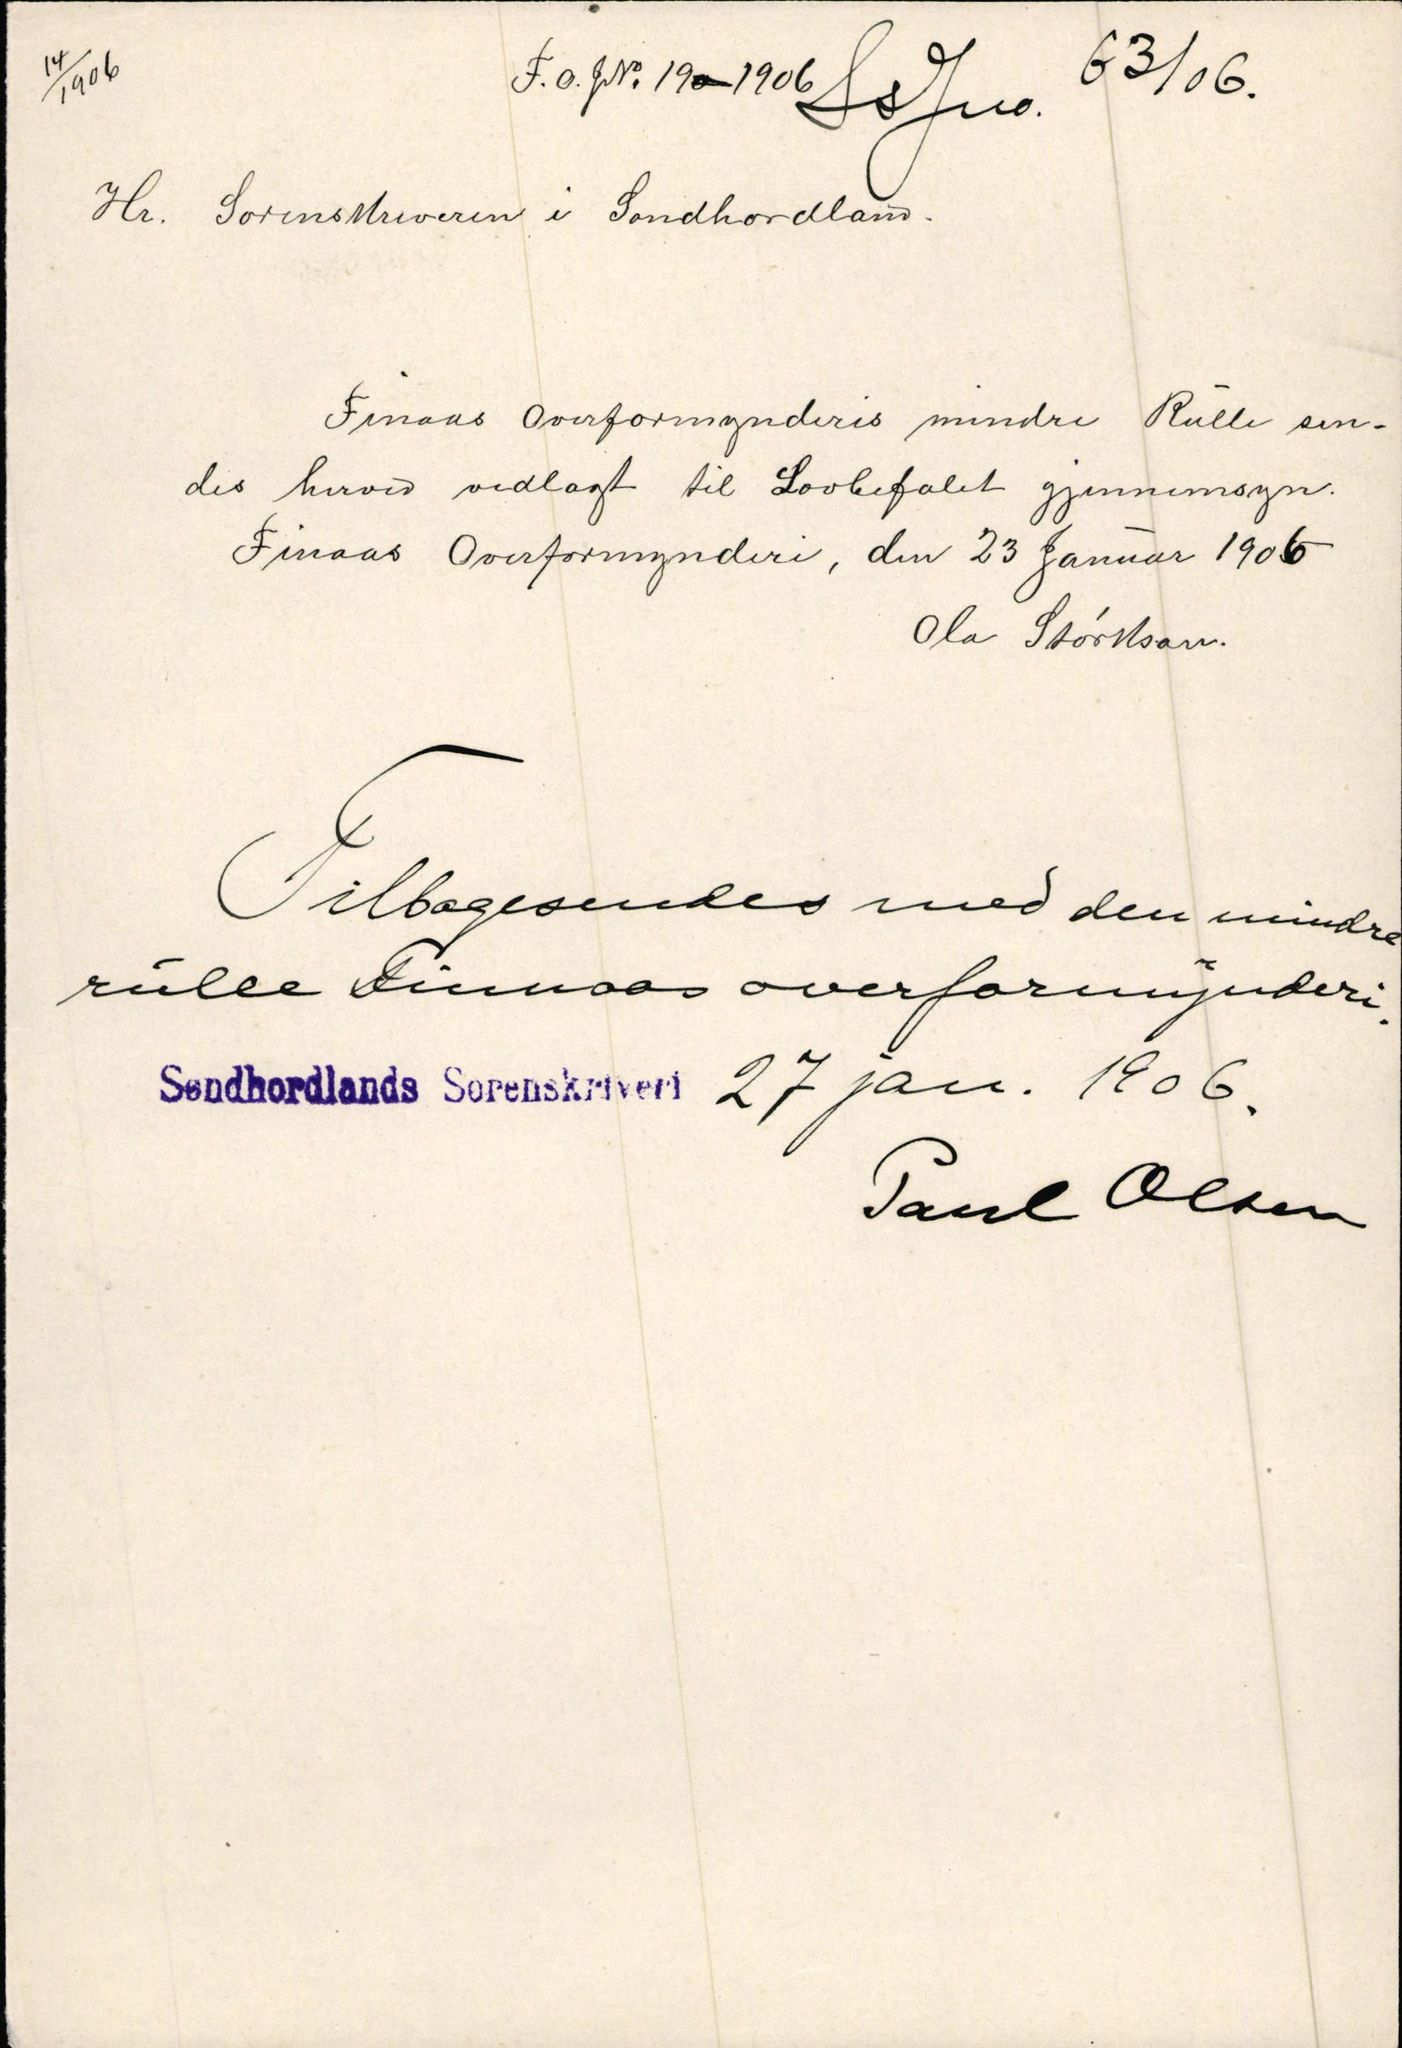 14/1906
F. O. JNo. 19 - 1906 SsJno. 63/06.
Hr. Sorenskriveren i Søndhordland.
Finaas Overformynderis mindre Rulle sen-
des herved vedlagt til Lovbefalet gjennemsyn.
Finaas Overformynderi, den 23 Januar 1906
Ola Størksen.
Tilbagesendes med den mindre
rulle Finnaas overformynderi.
Søndhordlands Sorenskriveri 27 jan. 1906.
Paul Olsen